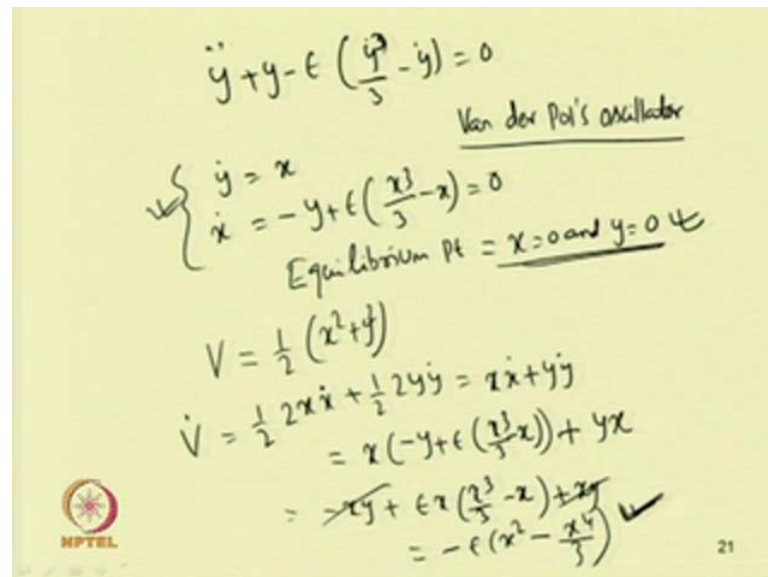 ÿ + y - ϵ (ẏ³/3 - ẏ) = 0
Van der Pol's oscillator
ẏ = x
ẋ = -y + ϵ (x³/3 - x) = 0
Equilibrium Pt = x=0 and y=0
V = 1/2 (x² + y²)
V̇ = 1/2 2xẋ + 1/2 2yẏ = xẋ + yẏ
= x(-y + ϵ(x³/3 - x)) + yx
= -xy + ϵx (x³/3 - x) + xy
= -ϵ(x² - x⁴/3)
NPTEL
21